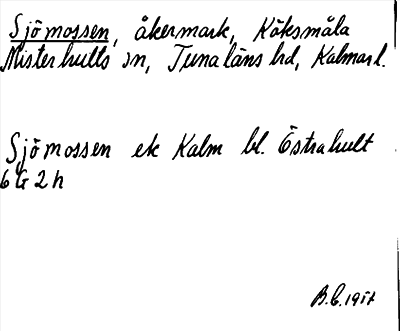 Sjömossen, åkermark, Köksmåla
Misterhults sn, Tunaläns hd, Kalmar l.
Sjömossen ek Kalm bl. Östrahult
6 G 2 h